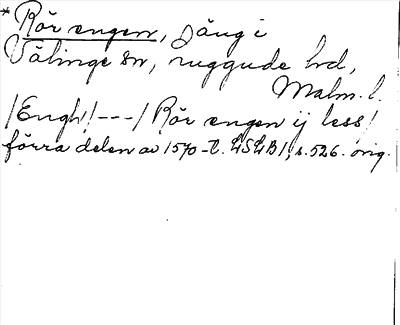 * Rör engen, äng i
Välinge sn, ruggude hd,
Malm. l.
/Engh/!---/ Rör engen ij less/
förra delen av 1570-t. LSLB1, s. 526. orig.